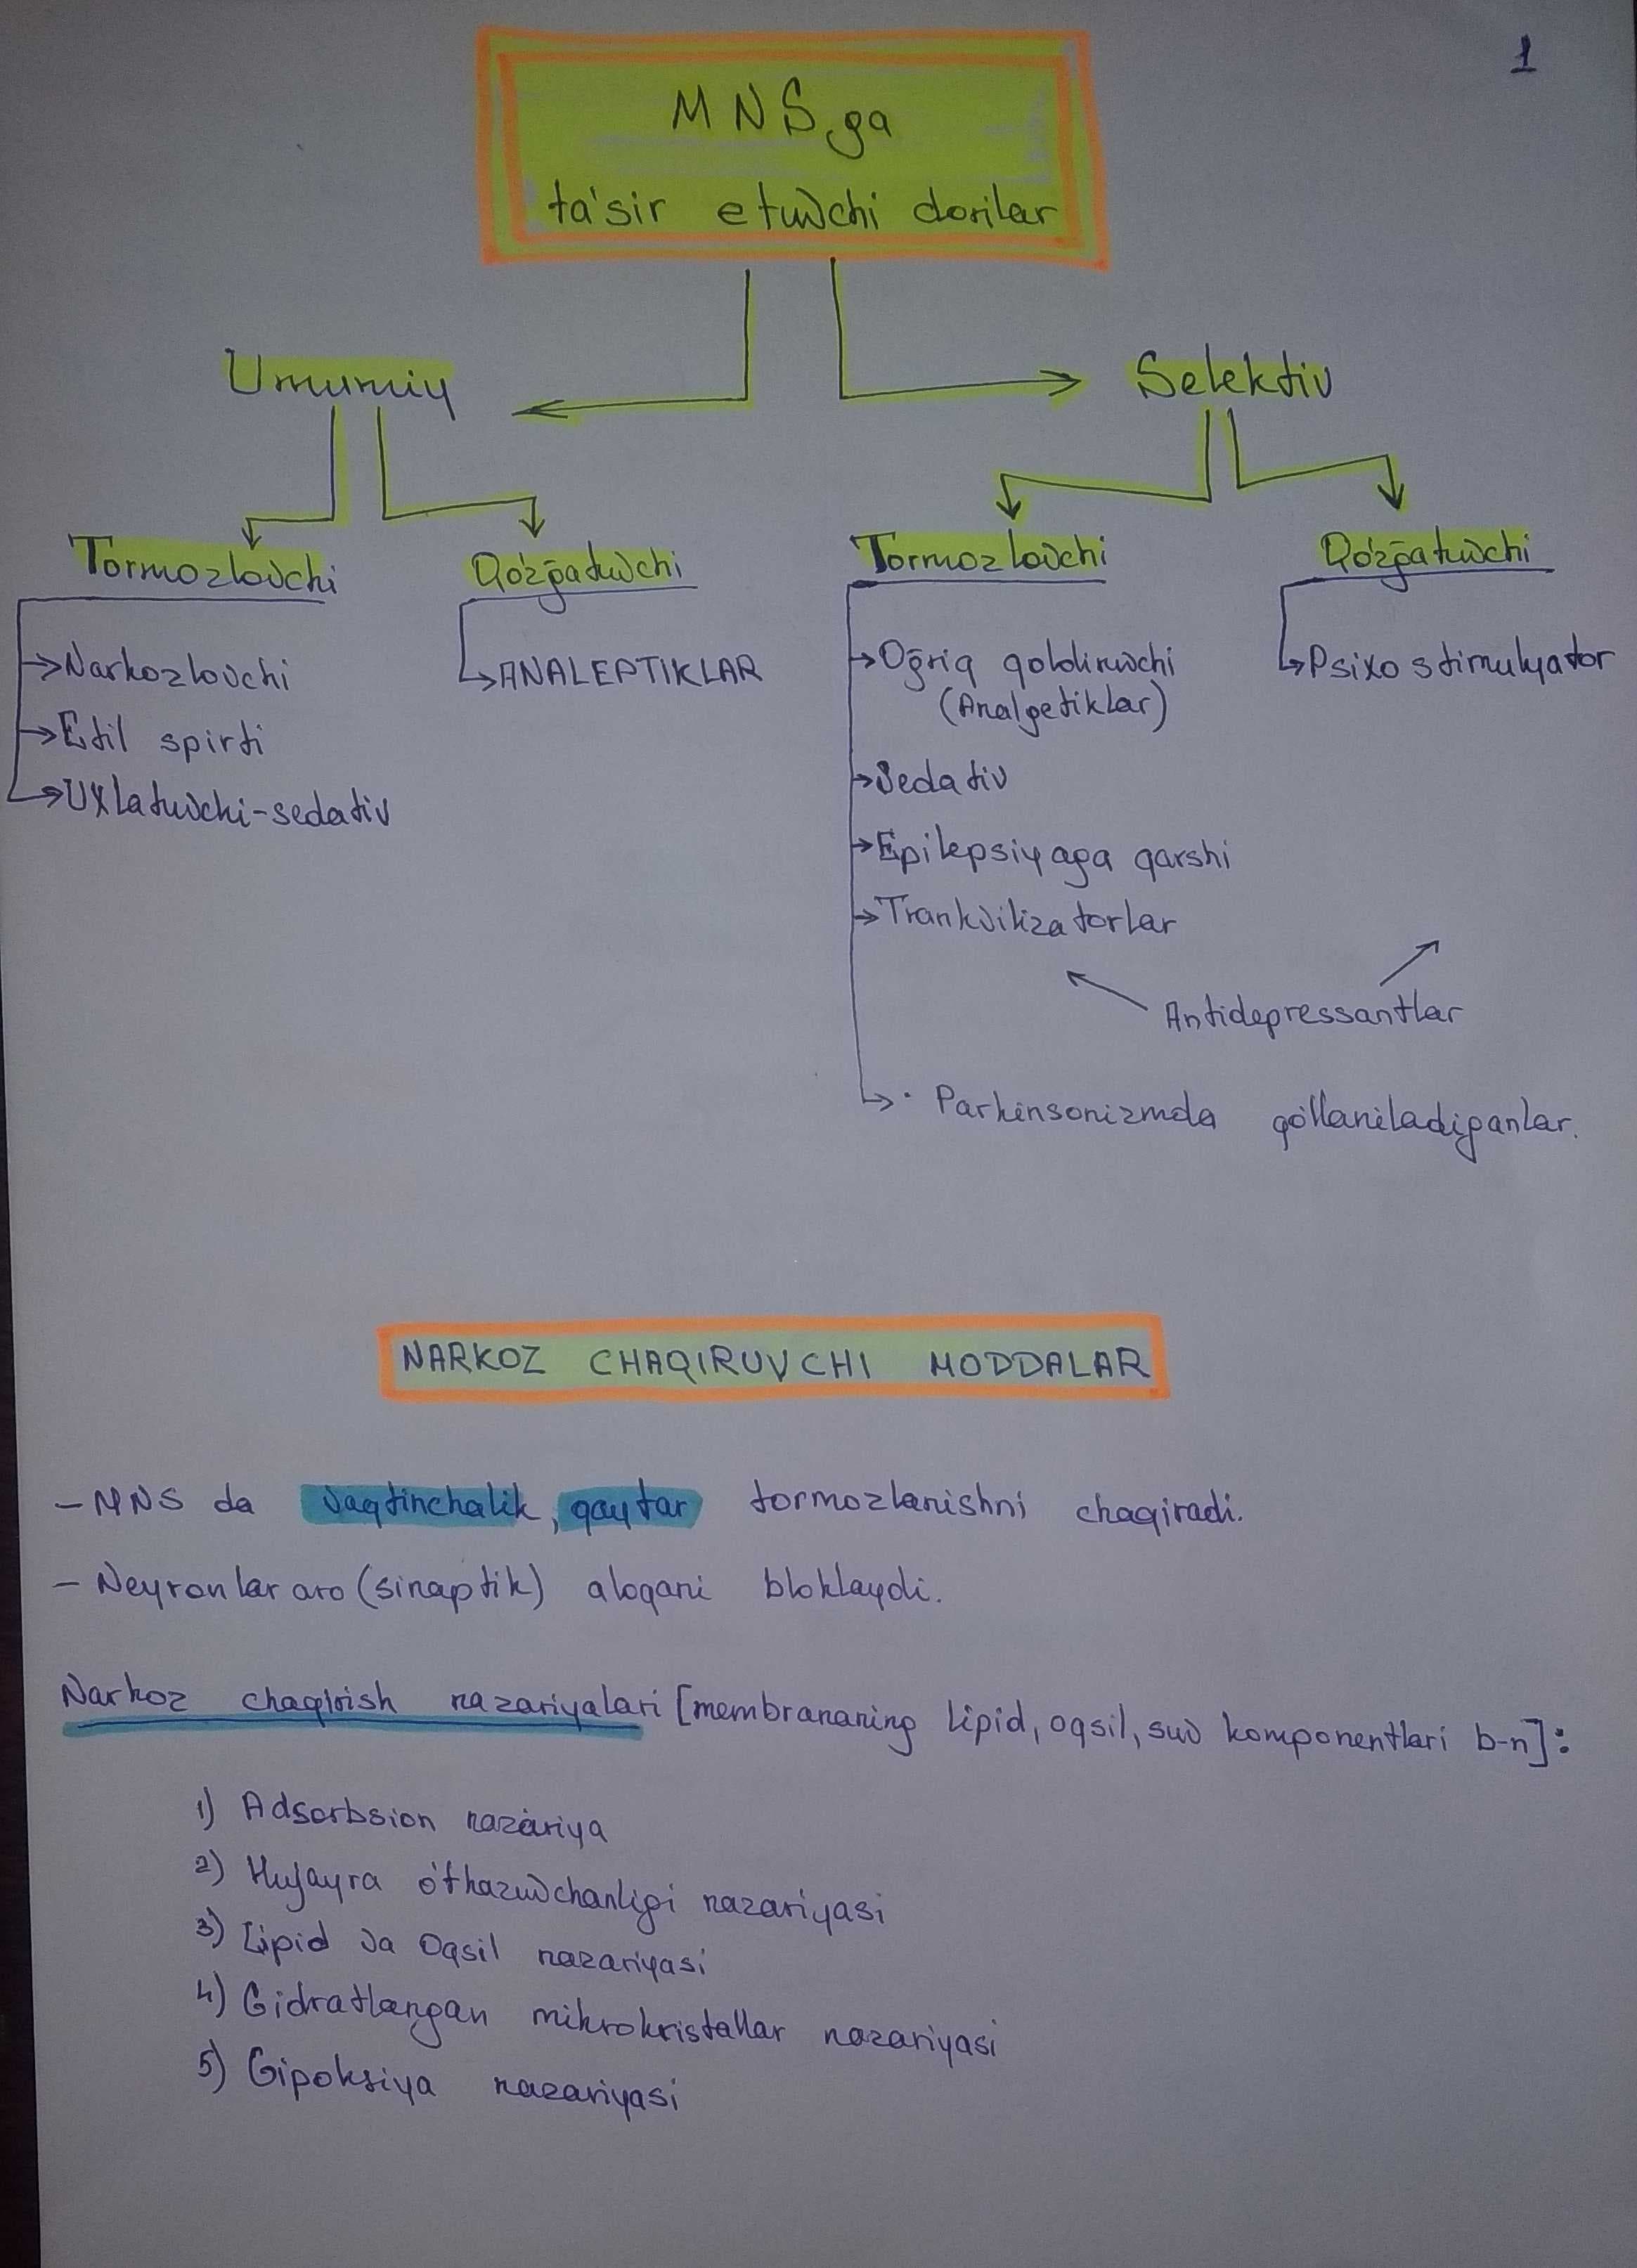 1
MNS,ga
ta'sir etuvchi dorilar
Umumiy
Selektiv
Tormozlovchi
Qo'zg̃atuvchi
Tormozlovchi
Qo'zg̃atuvchi
Narkozlovchi
Etil spirti
Uxlatuvchi-sedativ
ANALEPTIKLAR
Og̃riq qoldiruvchi
(Analgetiklar)
Sedativ
Epilepsiyaga qarshi
Trankvilizatorlar
Psixostimulyator
Antidepressantlar
Parkinsonizmda qo'llaniladiganlar.
NARKOZ CHAQIRUVCHI MODDALAR
– MNS da vaqtinchalik, qaytar tormozlanishni chaqiradi.
– Neyronlar aro (sinaptik) aloqani bloklaydi.
Narkoz chaqirish nazariyalari [membrananing lipid, oqsil, suv komponentlari b-n]:
1) Adsorbsion nazariya
2) Hujayra o'tkazuvchanligi nazariyasi
3) Lipid va Oqsil nazariyasi
4) Gidratlangan mikrokristallar nazariyasi
5) Gipoksiya nazariyasi